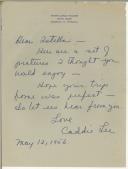 Dear Estelle —
Here are a set of
pictures I thought you
would enjoy —
Hope your trip
home was perfect —
So let us hear from you.
Love
Caddie Lee
May 12, 1956